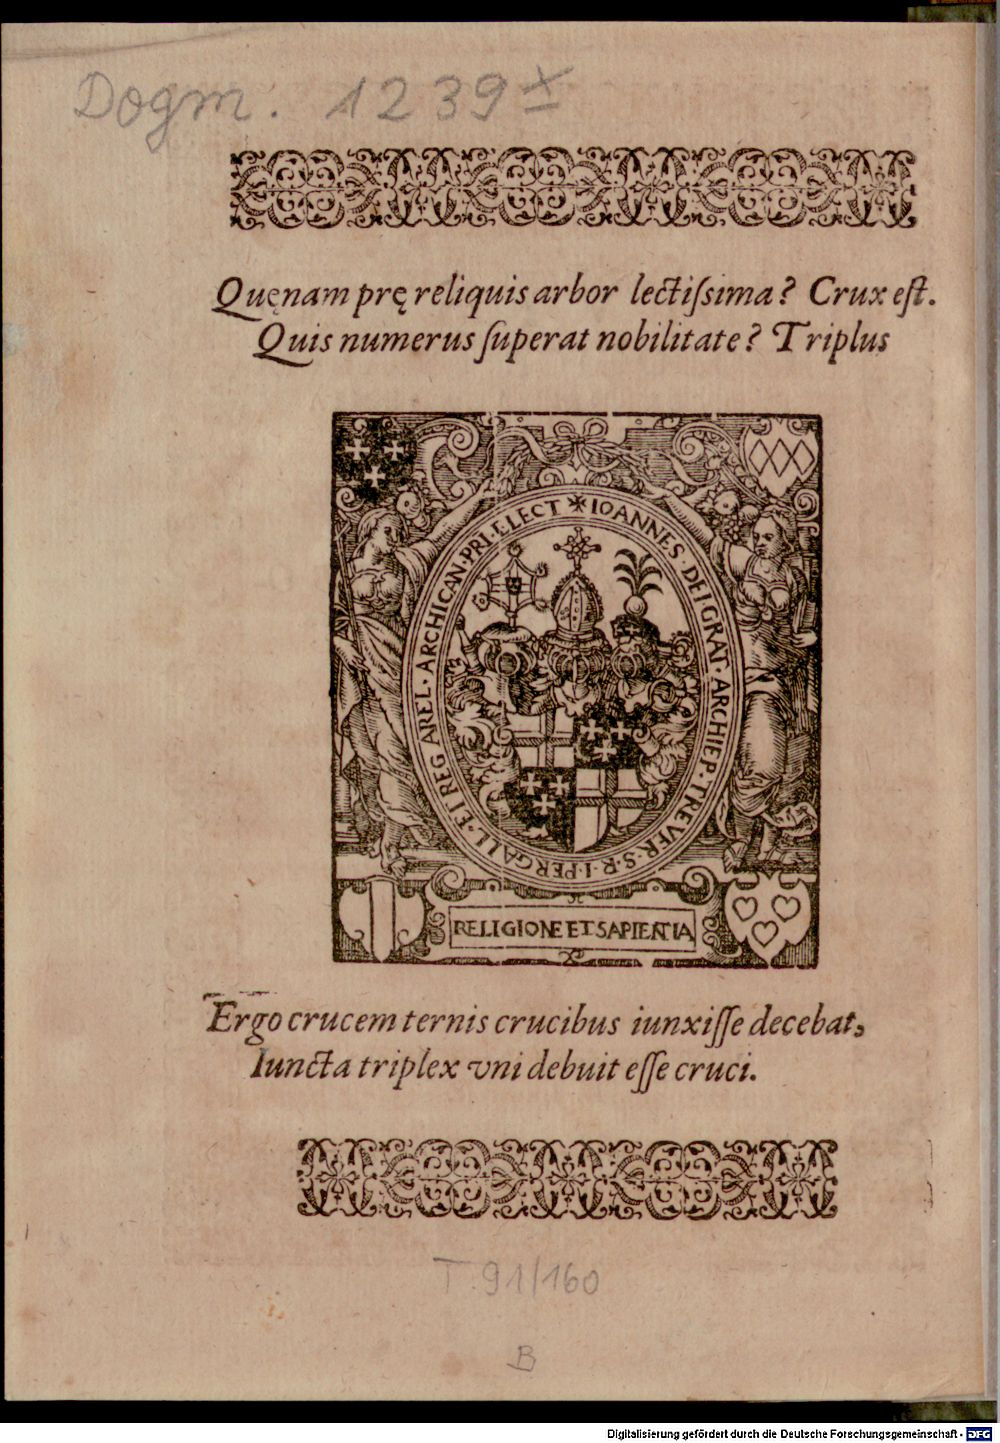 Dogm. 1239 x
Quęnam prę reliquis arbor lectiſsima? Crux eſt.
Quis numerus ſuperat nobilitate? Triplus
✴ IOANNES · DEI GRAT · ARCHIEP · TREVER · S · R · I · PER GALL · ET REG AREL · ARCHICAN · PRI · ELECT
RELIGIONE ET SAPIENTIA
Ergo crucem ternis crucibus iunxiſſe decebat,
Iuncta triplex vni debuit eſſe cruci.
T 91/160
B
Digitalisierung gefördert durch die Deutsche Forschungsgemeinschaft - DFG